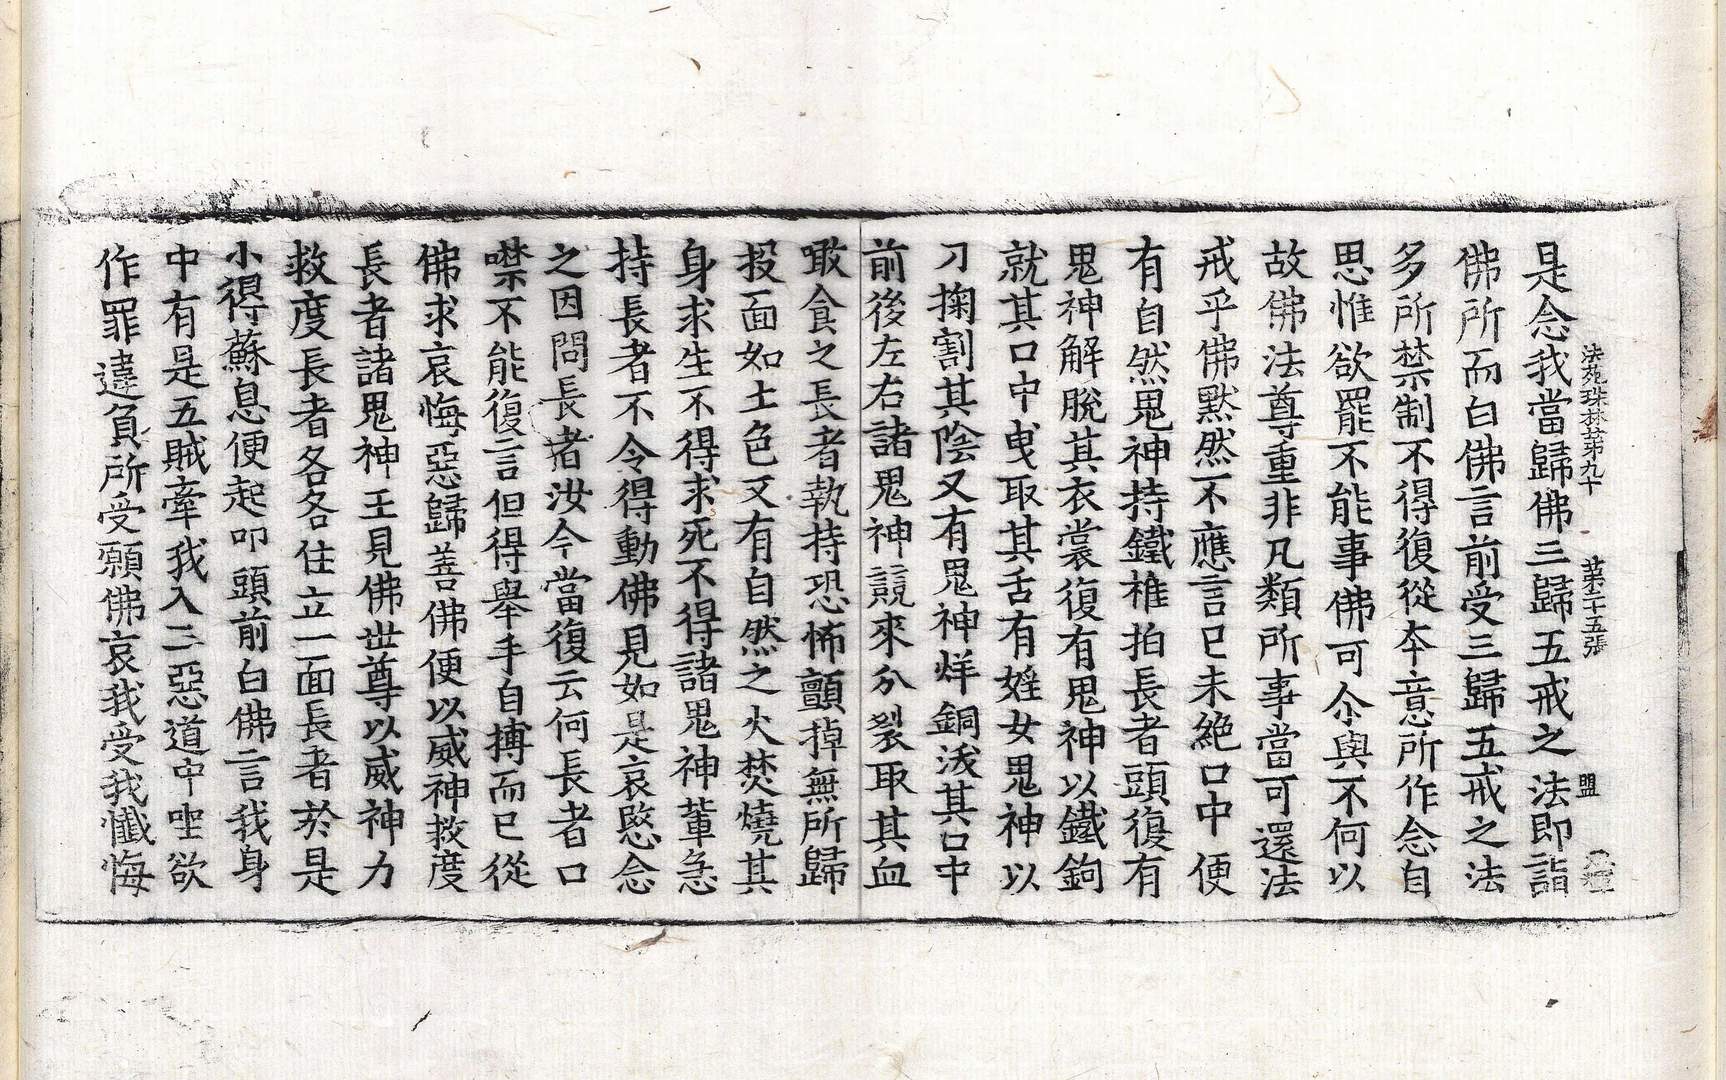 法苑珠林第九十 第二十五張 盟
是念我當歸佛三歸五戒之法即詣
佛所而白佛言前受三歸五戒之法
多所禁制不得復從本意所作念自
思惟欲罷不能事佛可尒與不何以
故佛法尊重非凡類所事當可還法
戒乎佛默然不應言已未絶口中便
有自然鬼神持鐵椎拍長者頭復有
鬼神解脫其衣裳復有鬼神以鐵鉤
就其口中曵取其舌有婬女鬼神以
刀掬割其陰又有鬼神烊銅沃其口中
前後左右諸鬼神競來分裂取其血
噉食之長者執持恐怖顫掉無所歸
投面如土色又有自然之火焚燒其
身求生不得求死不得諸鬼神輩急
持長者不令得動佛見如是哀愍念
之因問長者汝今當復云何長者口
噤不能復言但得舉手自搏而已從
佛求哀悔惡歸善佛便以威神救度
長者諸鬼神王見佛世尊以威神力
救度長者各各住立一面長者於是
小得蘇息便起叩頭前白佛言我身
中有是五賊牽我入三惡道中坐欲
作罪違負所受願佛哀我受我懺悔